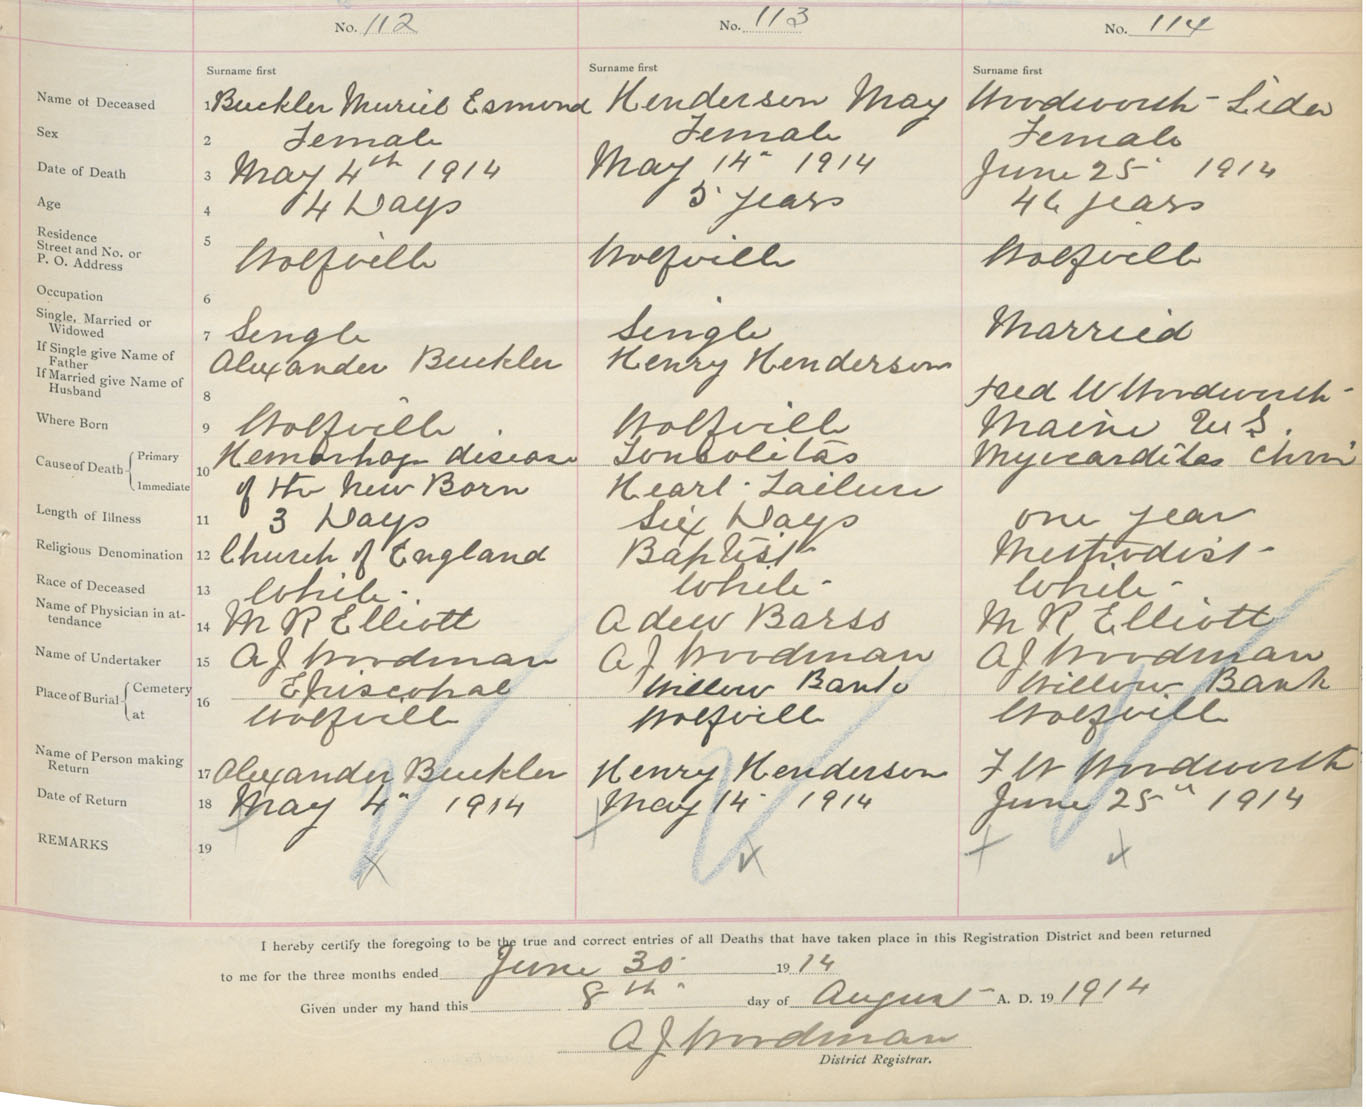 No. 112 No. 113 No. 114
Surname first Surname first Surname first
Name of Deceased 1 Buckler Muriel Esmond Henderson May Woodworth - Lida
Sex 2 Female Female Female
Date of Death 3 May 4th 1914 May 14" 1914 June 25 1914
Age 4 4 Days 5 years 46 years
Residence
Street and No. or 5
P. O. Address Wolfville Wolfville Wolfville
Occupation 6
Single, Married or
Widowed 7 Single Single Married
If Single give Name of
Father Alexander Buckler Henry Henderson
If Married give Name of
Husband 8 Fred W Woodworth -
Where Born 9 Wolfville Wolfville Maine U S.
Cause of Death Primary 10 Hemorhage disease Tonsolitas Myocarditas Chroni
Immediate of the New Born Heart Failure
Length of Illness 11 3 Days Six Days one year
Religious Denomination 12 Church of England Baptist Methodist -
Race of Deceased 13 White White White
Name of Physician in at-
tendance 14 M R Elliott A dew Barss M R Elliott
Name of Undertaker 15 A J Woodman A J Woodman A J Woodman
Place of Burial Cemetery 16 Episcopal Willow Bank Willow Bank
at Wolfville Wolfville Wolfville
Name of Person making
Return 17 Alexander Buckler Henry Henderson F W Woodworth
Date of Return 18 May 4" 1914 May 14 1914 June 25" 1914
REMARKS 19
I hereby certify the foregoing to be the true and correct entries of all Deaths that have taken place in this Registration District and been returned
to me for the three months ended June 30 1914
Given under my hand this 8th day of August A. D. 19 1914
A J Woodman
District Registrar.